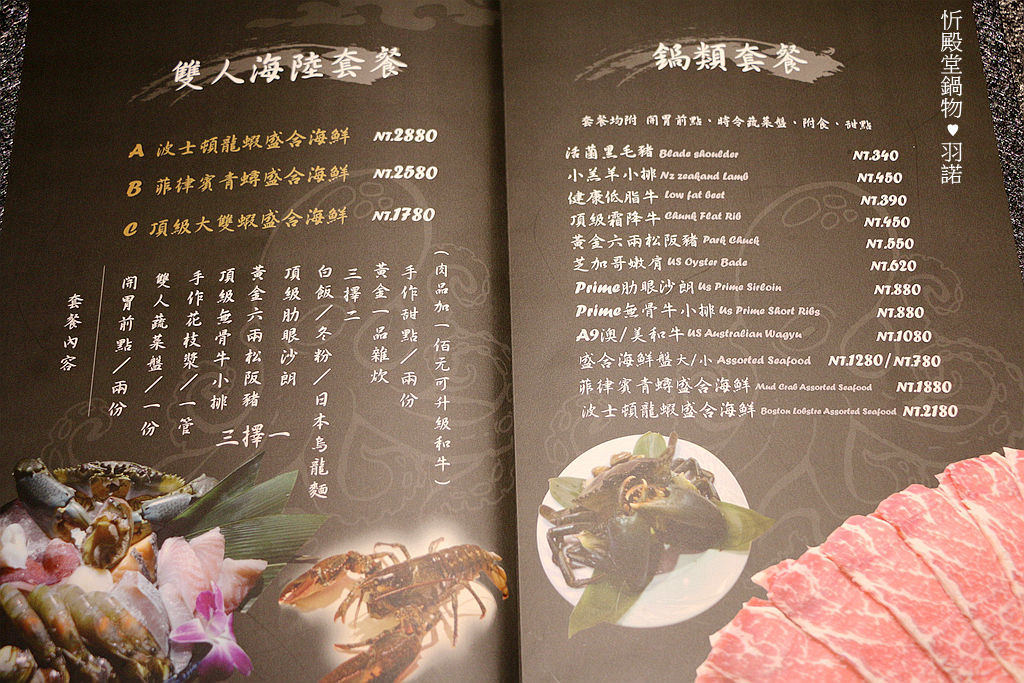 雙人海陸套餐
A 波士頓龍蝦盛合海鮮 NT.2880
B 菲律賓青蟳盛合海鮮 NT.2580
C 頂級大雙蝦盛合海鮮 NT.1780
(肉品加一佰元可升級和牛)
手作甜點/兩份
黃金一品雜炊
三擇二
白飯/冬粉/日本烏龍麵
頂級肋眼沙朗
黃金六兩松阪豬
頂級無骨牛小排
三擇一
手作花枝漿/一管
雙人蔬菜盤/一份
開胃前點/兩份
套餐內容
鍋類套餐
套餐均附 開胃前點、時令蔬菜盤、附食、甜點
活菌黑毛豬 Blade shoulder NT.340
小羔羊小排 Nz zeakand Lamb NT.450
健康低脂牛 Low fat beet NT.390
頂級霜降牛 Chunk Flat Rib NT.450
黃金六兩松阪豬 Park Chuck NT.550
芝加哥嫩肩 US Oyster Bade NT.620
Prime肋眼沙朗 Us Prime Sirloin NT.880
Prime無骨牛小排 Us Prime Short Ribs NT.880
A9澳/美和牛 US Australian Wagyu NT.1080
盛合海鮮盤大/小 Assorted Seafood NT.1280/NT.780
菲律賓青蟳盛合海鮮 Mud Crab Assorted Seafood NT.1880
波士頓龍蝦盛合海鮮 Boston Lobstre Assorted Seafood NT.2180
忻殿堂鍋物♥羽諾